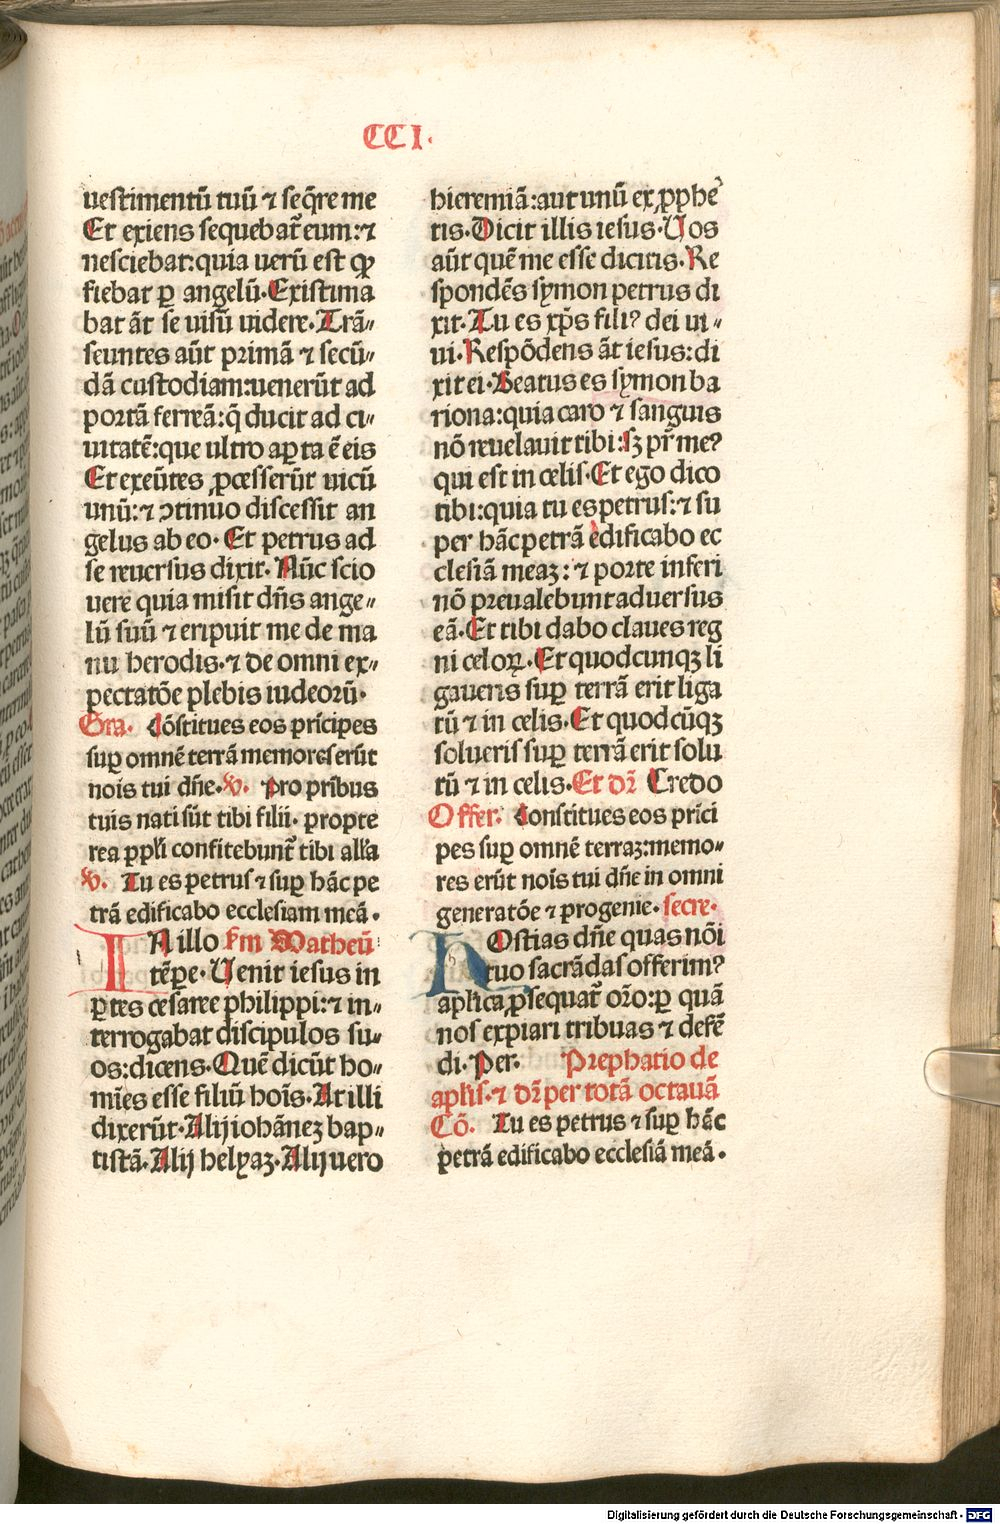 CCI.
uestimentū tuū ⁊ seq̄re me
Et exiens sequebat̄ eum:⁊
nesciebat:quia uerū est ꝙ
fiebat ꝑ angelū.Existima
bat āt se uisū uidere.Trā〃
seuntes aūt primā ⁊ secū〃
dā custodiam:uenerūt ad
portā ferreā:q̄ ducit ad ci〃
uitatē:que ultro aꝑta ē eis
Et exeūtes ꝓcesserūt uicū
unū:⁊ ↄtinuo discessit an
gelus ab eo. Et petrus ad
se reuersus dixit. Nūc scio
uere quia misit dn̄s ange〃
lū suū ⁊ eripuit me de ma
nu herodis.⁊ de omni ex〃
pectatōe plebis iudeorū.
Gra. Cōstitues eos prīcipes
suꝑ omnē terrā memores erūt
nois tui dn̄e. V. Pro pr̄ibus
tuis nati sūt tibi filii. propte
rea ppl̄i confitebunt̄ tibi all̄a
V. Tu es petrus ⁊ suꝑ hāc pe
trā edificabo ecclesiam meā.
IN illo sm̄ Matheū
tēpe. Uenit iesus in
ꝑtes cesaree philippi:⁊ in〃
terrogabat discipulos su〃
os:dicens.Quē dicūt ho〃
mīes esse filiū hoīs.At illi
dixerūt.Alij iohānez bap〃
tistā.Alij helyaz.Alij uero
hieremiā:aut unū ex ꝓphe
tis.Dicit illis iesus.Uos
aūt quē me esse dicitis.Re
spondēs symon petrus di
xit.Tu es xp̄s fili? dei ui〃
ui.Respōdens āt iesus:di
xit ei.Beatus es symon ba
riona:quia caro ⁊ sanguis
nō reuelauit tibi:sꝫ pr̄ me?
qui est in celis.Et ego dico
tibi:quia tu es petrus:⁊ su
per hāc petrā edificabo ec
clesiā meaꝫ:⁊ porte inferi
nō preualebunt aduersus
eā.Et tibi dabo claues reg
ni celoꝝ.Et quodcunqꝫ li
gaueris suꝑ terrā erit liga
tū ⁊ in celis.Et quodcūqꝫ
solueris suꝑ terrā erit solu
tū ⁊ in celis.Et dr̄ Credo
Offer. Constitues eos prīci
pes suꝑ omnē terraꝫ:memo〃
res erūt nois tui dn̄e in omni
generatōe ⁊ progenie. secre.
HOstias dn̄e quas nōi
tuo sacrādas offerim?
apl̄ica ꝓsequat̄ orō:ꝑ quā
nos expiari tribuas ⁊ defē
di.Per. Prephatio de
apl̄is.⁊ dr̄ per totā octauā
Cō. Tu es petrus ⁊ suꝑ hāc
petrā edificabo ecclesiā meā.
Digitalisierung gefördert durch die Deutsche Forschungsgemeinschaft - DFG